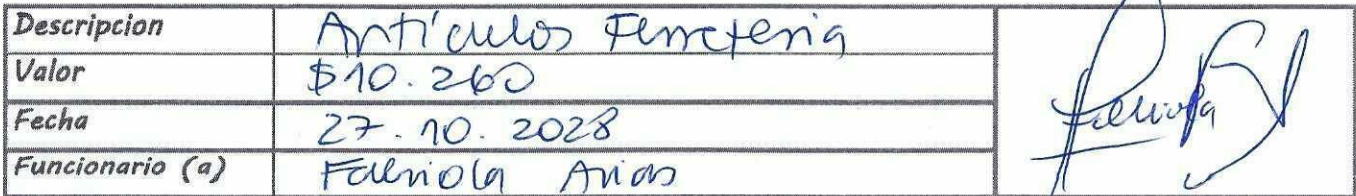 Descripcion Artículos Ferreteria
Valor $10.260
Fecha 27.10.2028
Funcionario (a) Fabiola Arias
Fabiola